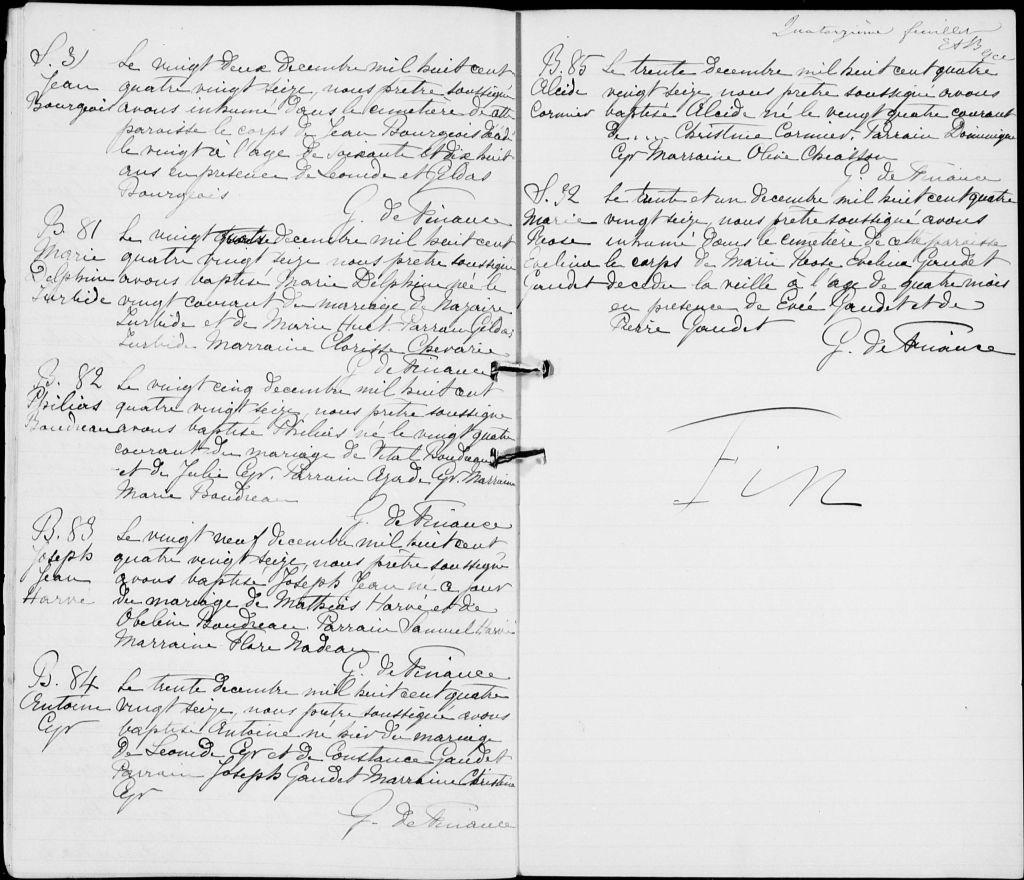 S. 31
Jean
Bourgeois
Le vingt deux decembre mil huit cent
quatre vingt seize, nous prêtre soussigné
avons inhumé dans le cimetière de cette
paroisse le corps de Jean Bourgeois décédé
le vingt à l'age de soixante et dix huit
ans en presence de Leonide et Geldas
Bourgeois
G. de Finance
B. 81
Marie
Delphine
Turbide
Le vingt quatre decembre mil huit cent
quatre vingt seize nous prêtre soussigné
avons baptise Marie Delphine née le
vingt courant du mariage de Nazaire
Turbide et de Marie Huet Parrain Geldas
Turbide Marraine Clarisse Chevarie
G. de Finance
B. 82
Philias
Boudreau
Le vingt cinq decembre mil huit cent
quatre vingt seize, nous prêtre soussigné
avons baptisé Philias né le vingt quatre
courant du mariage de Vital Boudreau
et de Julie Cyr. Parrain Agade Cyr. Marraine
Marie Boudreau
G. de Finance
B. 83
Joseph
Jean
Harvé
Le vingt neuf decembre mil huit cent
quatre vingt seize, nous prêtre soussigné
avons baptisé Joseph Jean né ce jour
du mariage de Mathias Harvé et de
Obeline Boudreau. Parrain Samuel Harvé
Marraine Flore Nadeau
G. de Finance
B. 84
Antoine
Cyr
Le trente decembre mil huit cent quatre
vingt seize, nous prêtre soussigné avons
baptise Antoine né hier du mariage
de Leonide Cyr et de Constance Gaudet
Parrain Joseph Gaudet Marraine Christine
Cyr
G. de Finance
Quatorzième feuillet
B. 85
Alcide
Cormier
Le trente decembre mil huit cent quatre
vingt seize, nous prêtre soussigné avons
baptisé Alcide né le vingt quatre courant
de .... Christine Cormier. Parrain Dominique
Cyr Marraine Olive Chiasson
G. de Finance
S. 32
Marie
Rose
Evelina
Gaudet
Le trente et un decembre mil huit cent quatre
vingt seize, nous prêtre soussigné avons
inhumé dans le cimetière de cette paroisse
le corps de Marie Rose Evelina Gaudet
decedee la veille à l'age de quatre mois
en presence de Evée Gaudet et de
Pierre Gaudet
G. de Finance
Fin